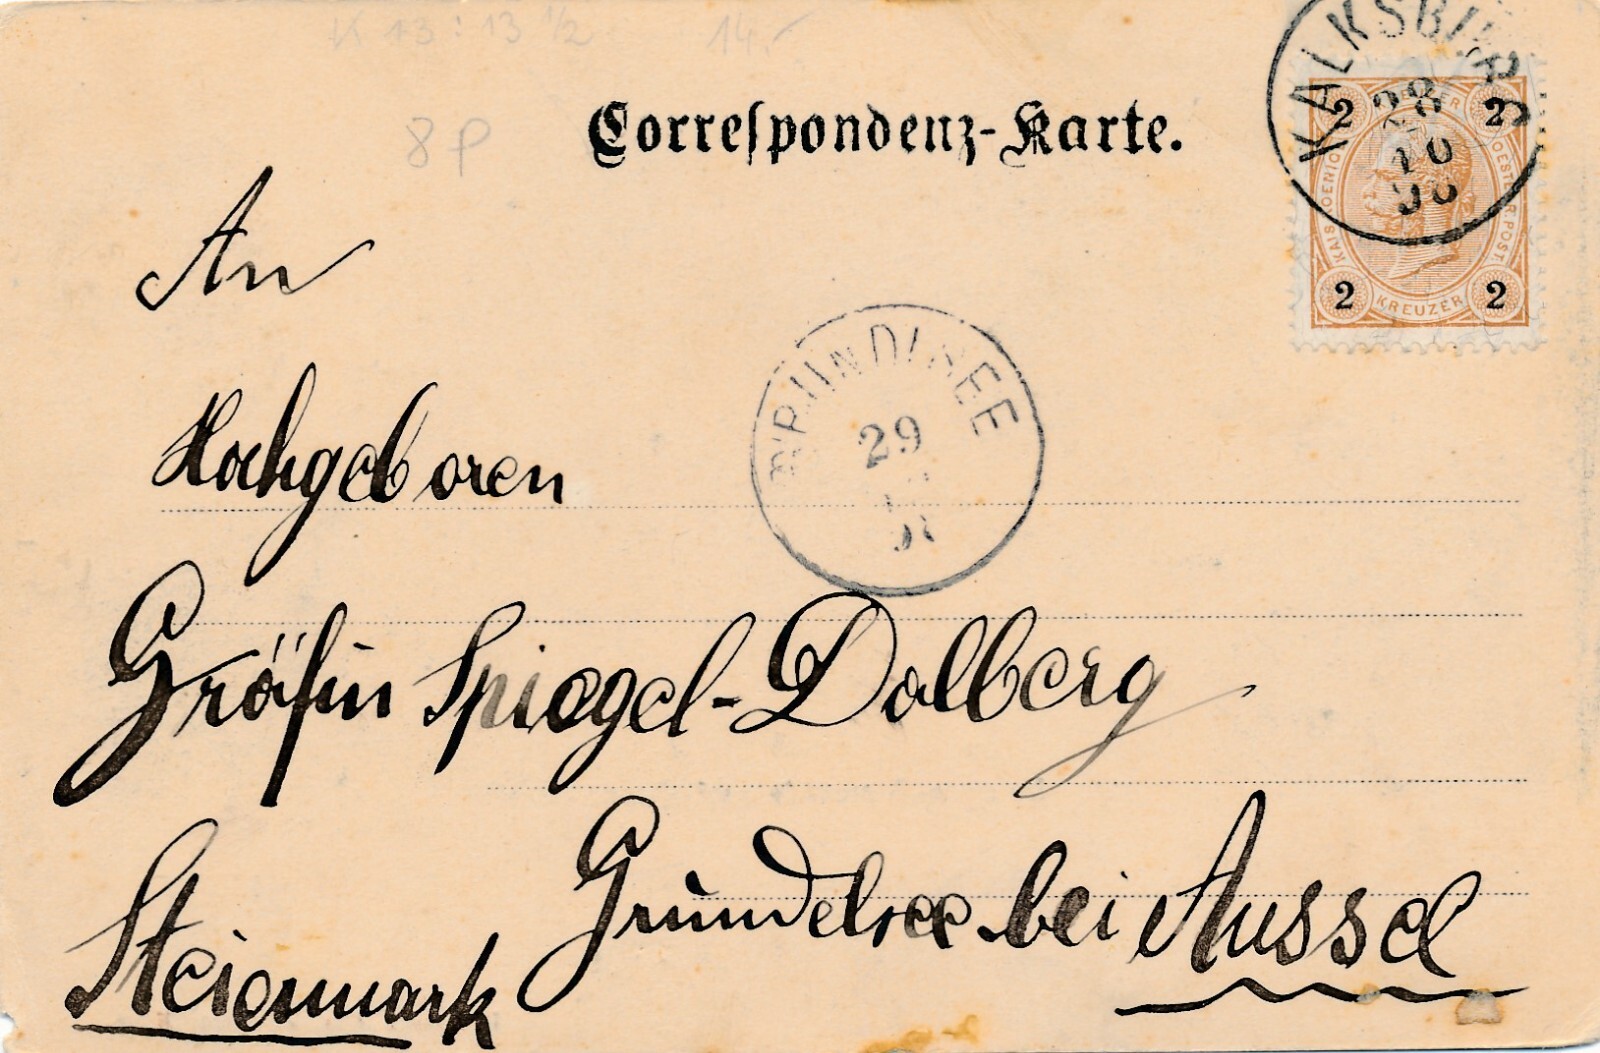 K 13 : 13 ½ 14.-
8 P
Correspondenz-Karte.
KALKSBURG
28
10
98
2 2
KAIS. KOENIGL. OESTERR. POST.
2 KREUZER 2
An
GRUNDLSEE
29
Hochgeboren
Gräfin Spiegel-Dalberg
Grundelsee bei Aussel
Steiermark